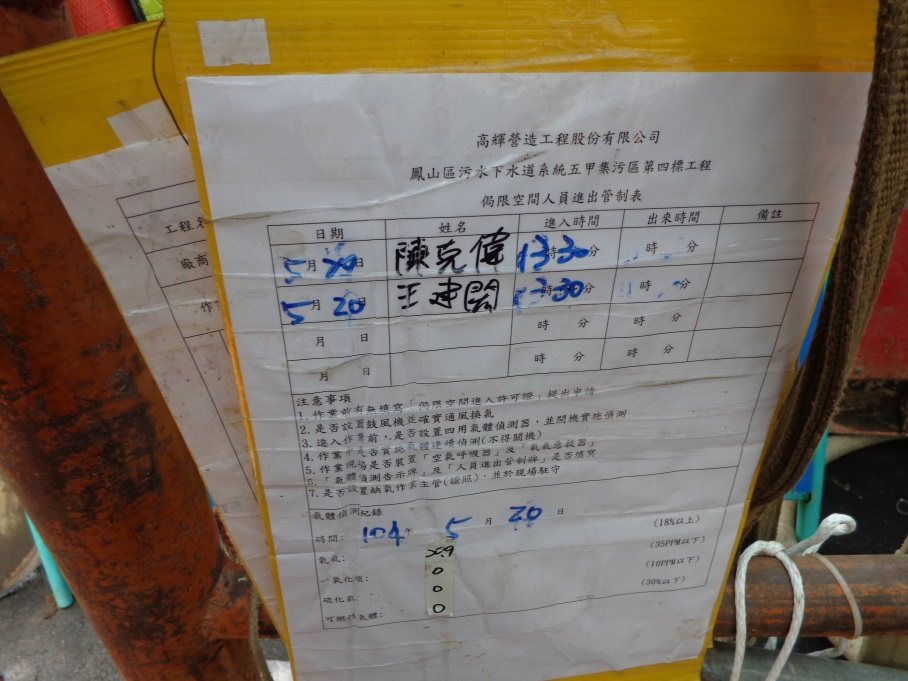 高輝營造工程股份有限公司
鳳山區污水下水道系統五甲集污區第四標工程
侷限空間人員進出管制表
日期 姓名 進入時間 出來時間 備註
5月20日 陳克偉 13時30分 時 分
5月20日 王建閎 13時30分 時 分
月 日 時 分 時 分
月 日 時 分 時 分
注意事項
1. 作業前有無填寫「侷限空間進入許可證」提出申請
2. 是否設置鼓風機並確實通風換氣
3. 進入作業前，是否設置四用氣體偵測器，並開機實施偵測
4. 作業中是否實施氣體連續偵測(不得關機)
5. 作業現場是否裝置「空氣呼吸器」及「氧氣急救器」
6. 「氣體偵測告示牌」及「人員進出管制牌」是否填寫
7. 是否設置缺氧作業主管(證照)，並於現場駐守
氣體偵測紀錄
時間： 104年 5月 20日
氧氣： (18%以上)
一氧化碳： 0 (35PPM以下)
硫化氫 0 (10PPM以下)
可燃性氣體： 0 (30%以下)
工程名
廠商
作